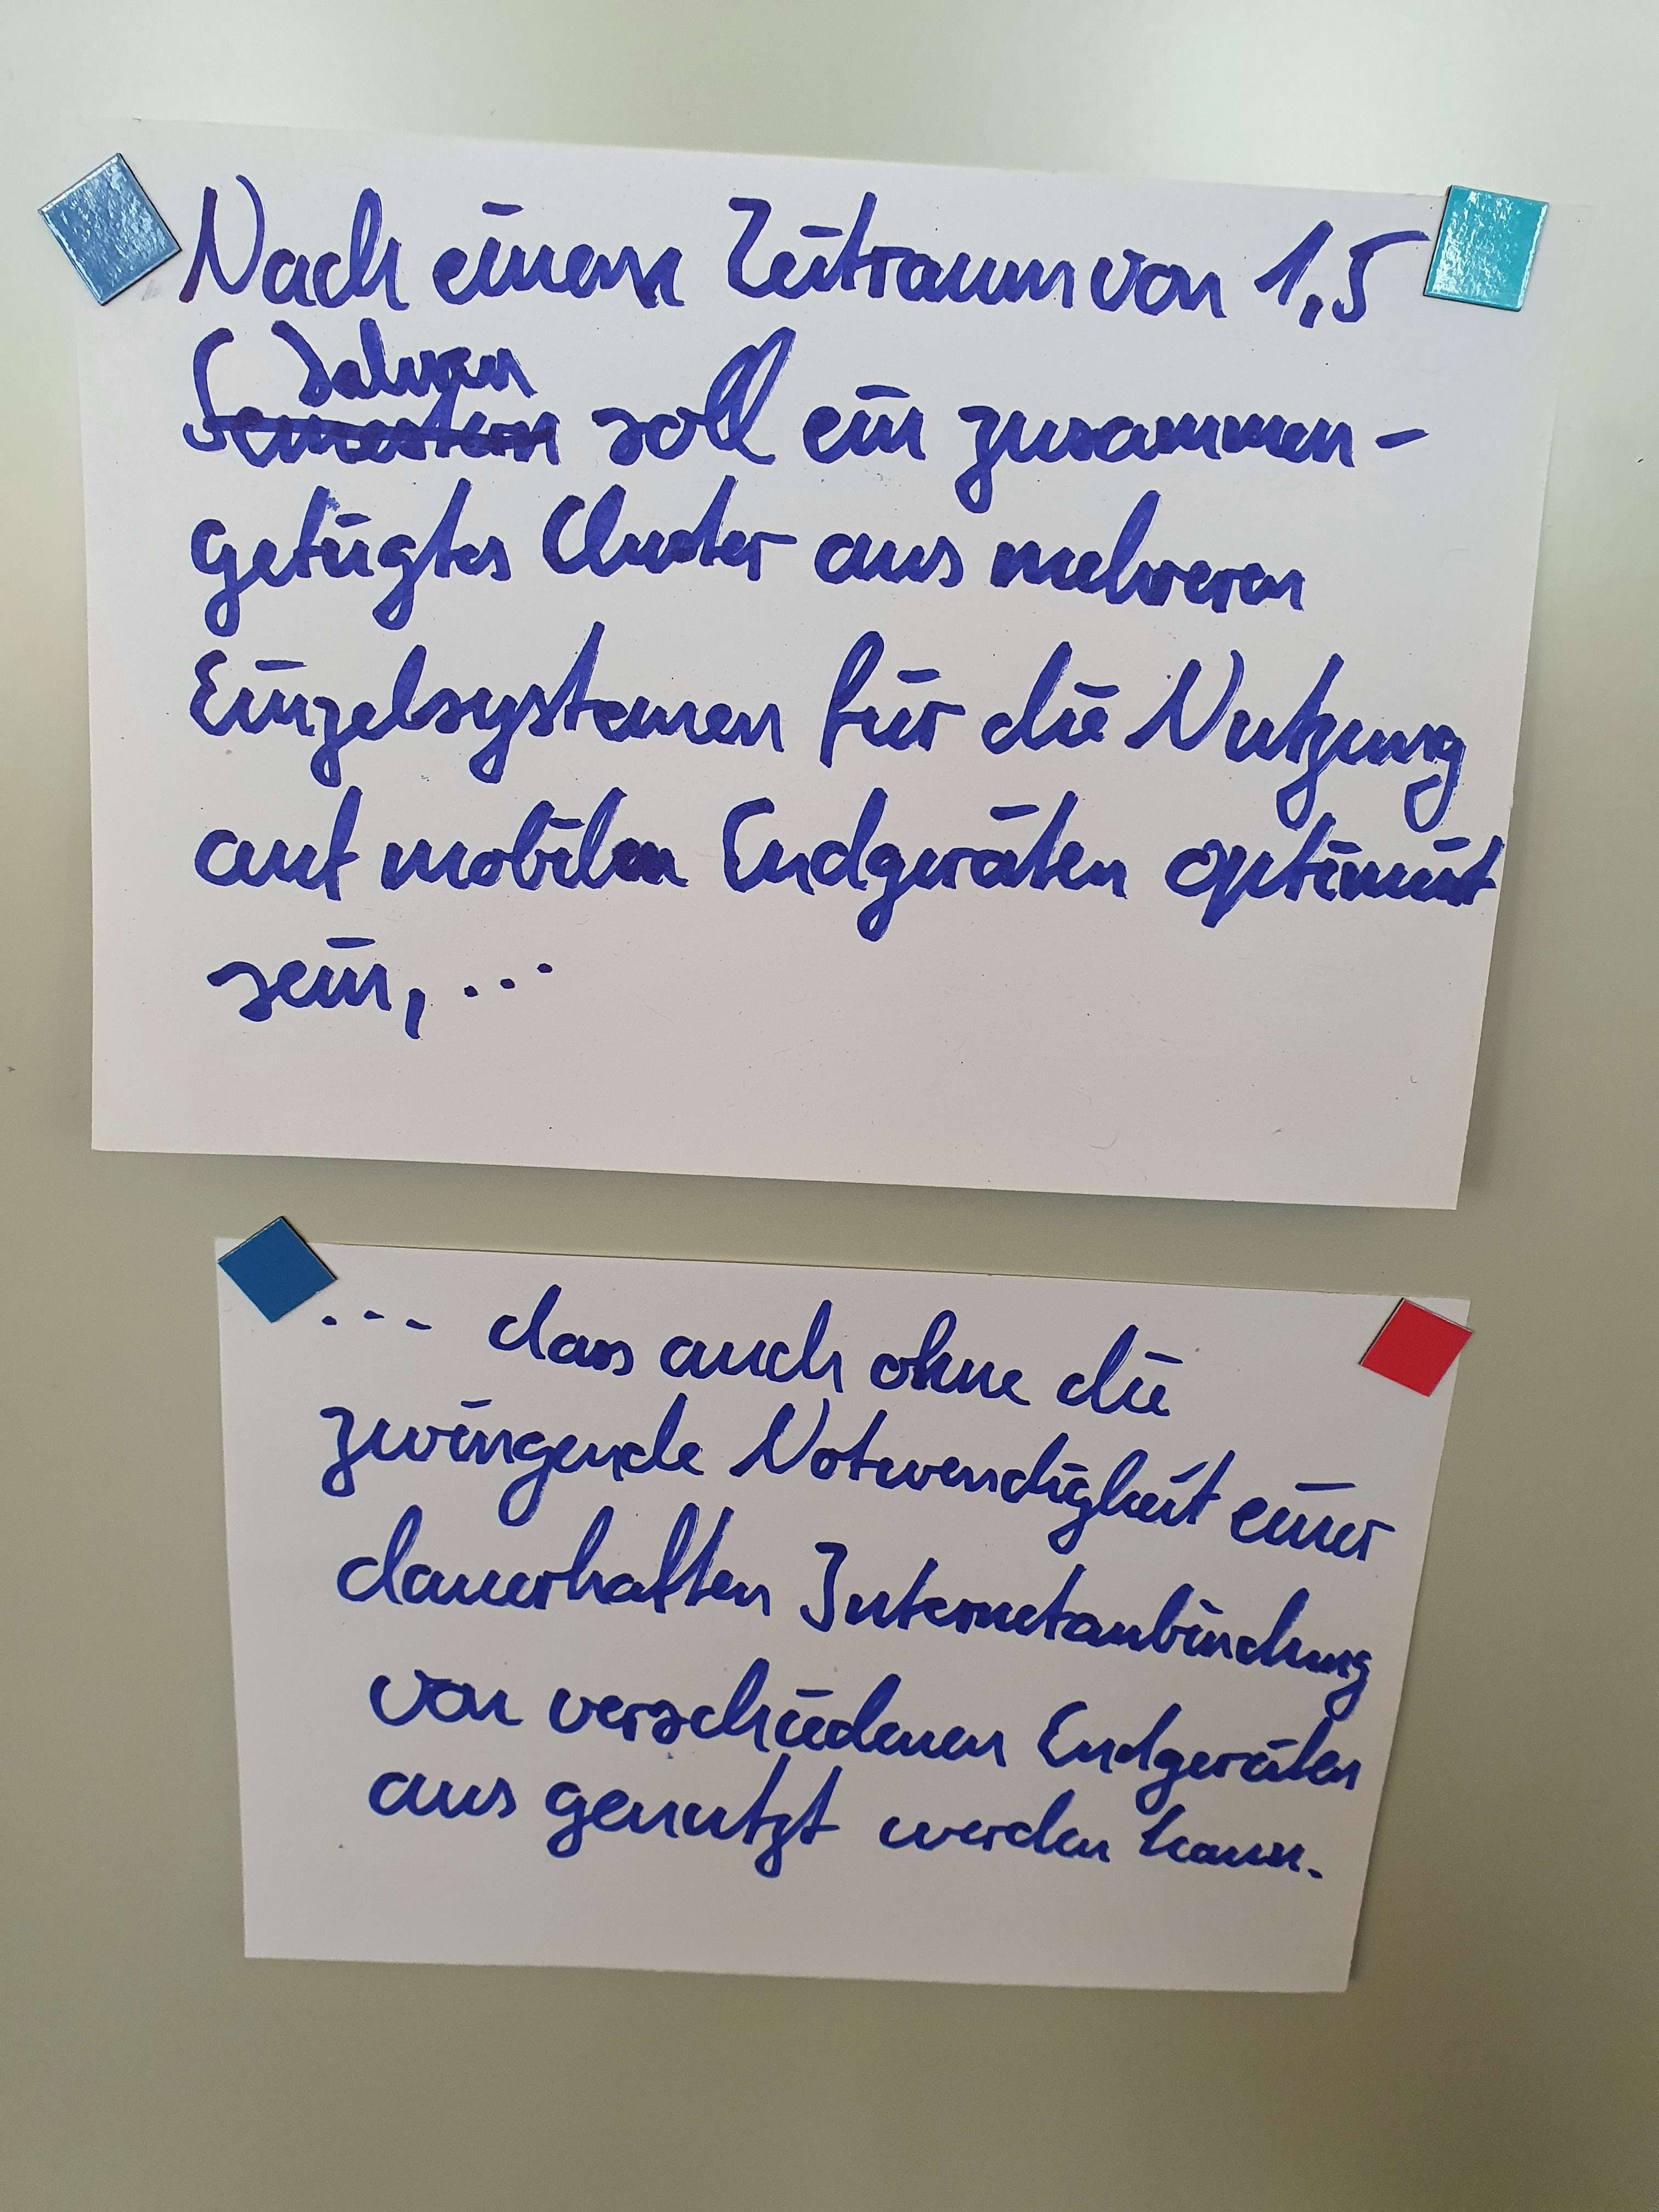 Nach einem Zeitraum von 1,5
Jahren
Semestern soll ein zusammen-
gefügtes Cluster aus mehreren
Einzelsystemen für die Nutzung
auf mobilen Endgeräten optimiert
sein, ...
... dass auch ohne die
zwingende Notwendigkeit einer
dauerhaften Internetanbindung
von verschiedenen Endgeräten
aus genutzt werden kann.